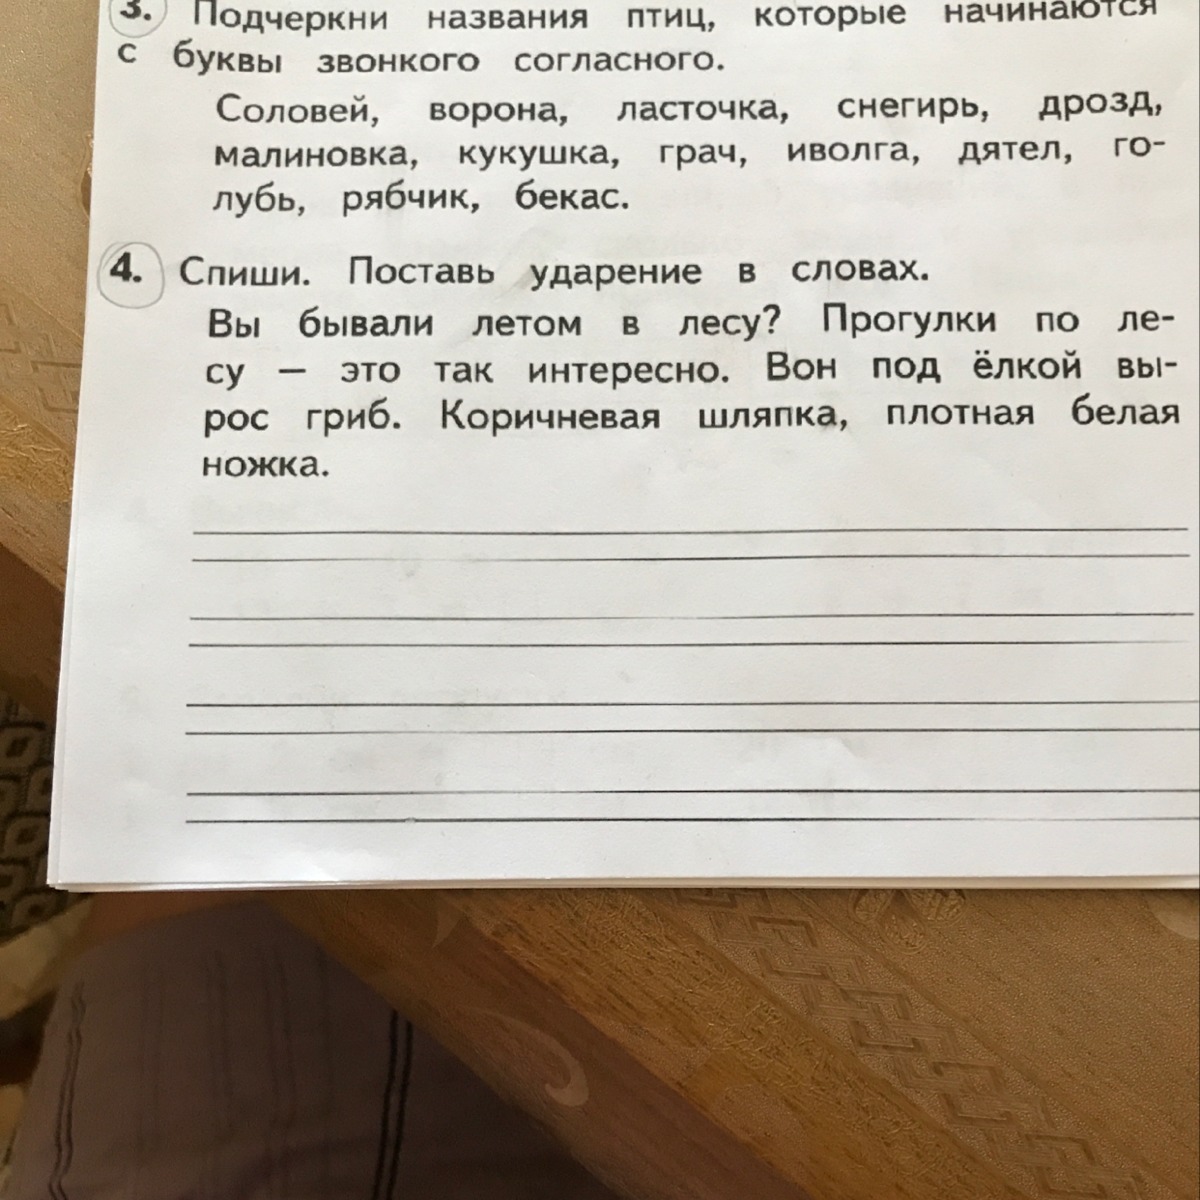 3. Подчеркни названия птиц, которые начинаются
с буквы звонкого согласного.
Соловей, ворона, ласточка, снегирь, дрозд,
малиновка, кукушка, грач, иволга, дятел, го-
лубь, рябчик, бекас.
4. Спиши. Поставь ударение в словах.
Вы бывали летом в лесу? Прогулки по ле-
су — это так интересно. Вон под ёлкой вы-
рос гриб. Коричневая шляпка, плотная белая
ножка.